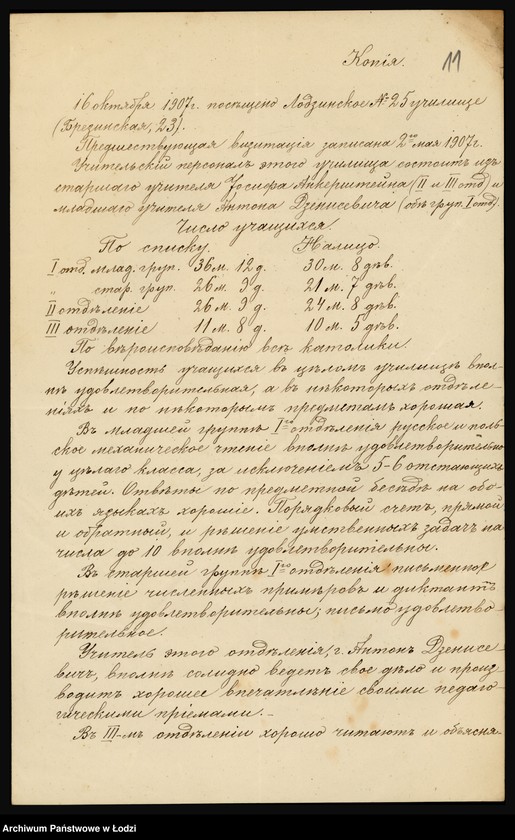 Копія.
11
16 октября 1907 г. посѣщено Лодзинское № 25 училище
(Брезинская, 23).
Предшествующая визитація записана 2го мая 1907 г.
Учительскій персоналъ этого училища состоитъ изъ
старшаго учителя Іосифа Анкерштейна (II и III отд) и
младшаго учителя Антона Дзенисевича (объ груп. I отд).
Число учащихся.
По списку. Налицо.
I отд. млад. груп. 36 м. 12 д. 30 м. 8 дѣв.
" стар. груп. 26 м. 9 д. 21 м. 7 дѣв.
II отдѣленіе 26 м. 9 д. 24 м. 8 дѣв.
III отдѣленіе 11 м. 8 д. 10 м. 5 дѣв.
По вѣроисповѣданію всѣ католики.
Успѣшность учащихся въ цѣломъ училищѣ впол-
нѣ удовлетворительная, а въ нѣкоторыхъ отдѣле-
ніяхъ и по нѣкоторымъ предметамъ хорошая.
Въ младшей группѣ Iго отдѣленія русское и поль-
ское механическое чтеніе вполнѣ удовлетворительно
у цѣлаго класса, за исключеніемъ 5-6 отстающихъ
дѣтей. Отвѣты по предметной бесѣдѣ на обо-
ихъ языкахъ хорошіе. Порядковый счетъ, прямой
и обратный, и рѣшеніе умственныхъ задачъ на
числа до 10 вполнѣ удовлетворительны.
Въ старшей группѣ Iго отдѣленія письменное
рѣшеніе численныхъ примѣровъ и диктантъ
вполнѣ удовлетворительное; письмо удовлетво-
рительное.
Учитель этого отдѣленія, г. Антонъ Дзенисе-
вичъ, вполнѣ солидно ведетъ свое дѣло и произ-
водитъ хорошее впечатлѣніе своими педаго-
гическими пріемами. –
Въ III-мъ отдѣленіи хорошо читаютъ и объясня-
Archiwum Państwowe w Łodzi